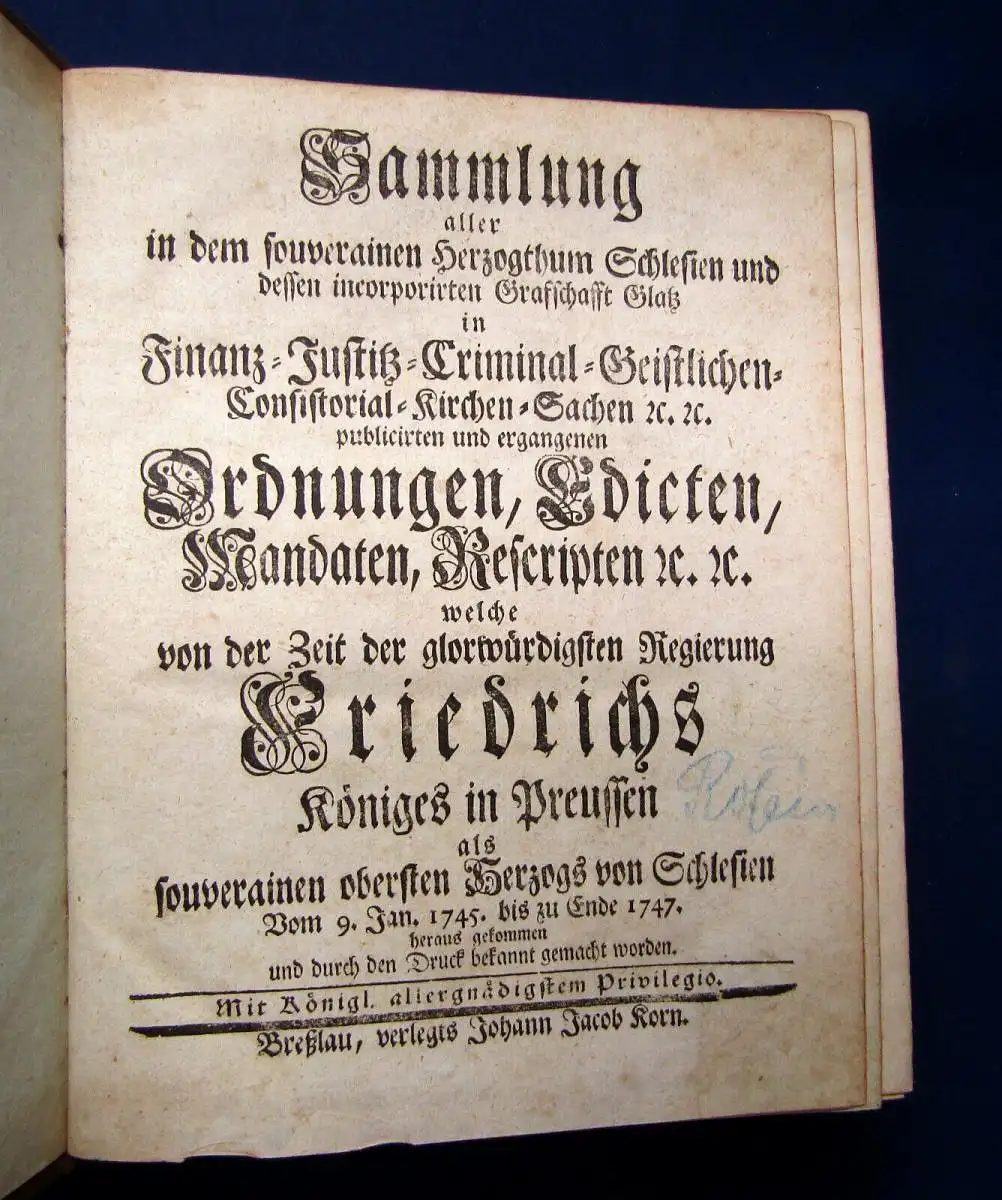 Sammlung
aller
in dem souverainen Herzogthum Schlesien und
dessen incorporirten Grafschafft Glatz
in
Finanz-Justitz-Criminal-Geistlichen-
Consistorial-Kirchen-Sachen ꝛc. ꝛc.
publicirten und ergangenen
Ordnungen, Edicten,
Mandaten, Rescripten ꝛc. ꝛc.
welche
von der Zeit der glorwürdigsten Regierung
Friedrichs
Königes in Preussen
als
souverainen obersten Herzogs von Schlesien
Vom 9. Jan. 1745. bis zu Ende 1747.
heraus gekommen
und durch den Druck bekannt gemacht worden.
Mit Königl. allergnädigstem Privilegio.
Breßlau, verlegts Johann Jacob Korn.